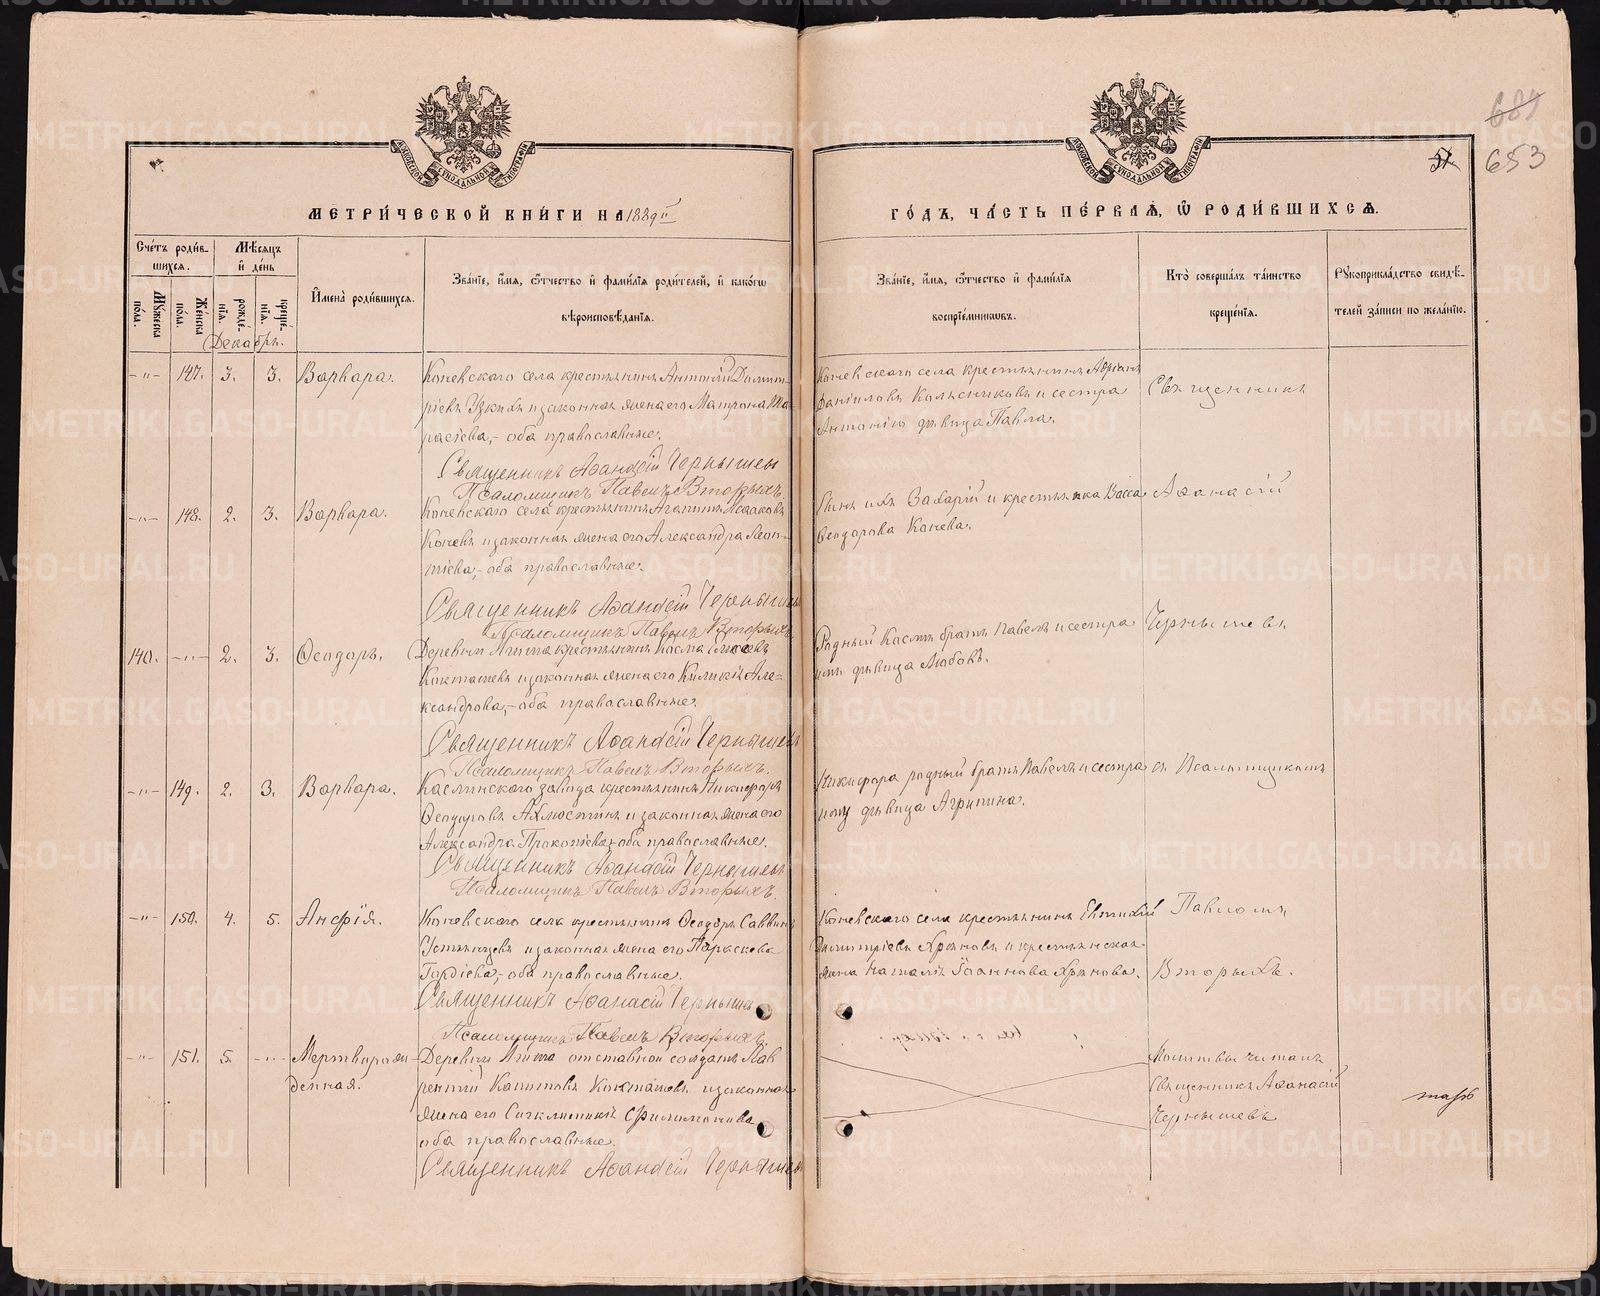 684
51
653
МЕТРИ́ЧЕСКОЙ КНИ́ГИ НА 1889й
ГО́ДЪ, ЧА́СТЬ ПЕ́РВАѦ, Ѡ РОДИ́ВШИХСѦ.
Сче́тъ роди́в-
шихсѧ.
Мѣ́сѧцъ
и҆ де́нь
Мꙋ́жеска
по́ла.
Же́нска
по́ла.
рожде́-
нїѧ.
креще́-
нїѧ.
И҆мена̀ роди́вшихсѧ.
Зва́нїе, и҆́мѧ, ѻ҆́тчество и҆ фами́лїѧ роди́телей, и҆ како́гѡ
вѣроисповѣ́данїѧ.
Зва́нїе, и҆́мѧ, ѻ҆́тчество и҆ фами́лїѧ
воспрїе́мникѡвъ.
Кто̀ соверша́лъ та́инство
креще́нїѧ.
Рꙋкоприкла́дство свидѣ́-
телей за́писи по жела́нїю.
Декабрь.
-"- 147. 3. 3. Варвара.
Коневскаго села крестьянинъ Антоній Димит-
ріевъ Узкихъ и законная жена его Матрона Та-
расіева,- оба православные.
Священникъ Аѳанасій Чернышевъ
Псаломщикъ Павелъ Вторыхъ.
Коневскаго села крестьянинъ Адріанъ
Даніиловъ Колесниковъ и сестра
Антонію дѣвица Павла.
Священникъ
-"- 148. 2. 3. Варвара.
Коневскаго села крестьянинъ Агапитъ Исааковъ
Коневъ и законная жена его Александра Леон-
тіева,- оба православные.
Священникъ Аѳанасій Чернышевъ
Псаломщикъ Павелъ Вторыхъ.
Захарій и крестьянка Васса
Ѳеодорова Конева.
Аѳанасій
140. -"- 2. 3. Ѳеодоръ.
Деревни крестьянинъ Косма
Кокташевъ и законная жена его Киликія Але-
ксандрова,- оба православные.
Священникъ Аѳанасій Чернышевъ
Псаломщикъ Павелъ Вторыхъ.
Родный Космѣ братъ Павелъ и сестра
имъ дѣвица Любовь.
Чернышевъ
-"- 149. 2. 3. Варвара.
Каслинскаго завода крестьянинъ Никифоръ
Ѳеодоровъ Ахлюстинъ и законная жена его
Александра Прокопіева,- оба православные.
Священникъ Аѳанасій Чернышевъ
Псаломщикъ Павелъ Вторыхъ.
Никифора родный братъ Павелъ и сестра
ему дѣвица Агрипина.
съ Псаломщикомъ
-"- 150. 4. 5. Анфія.
Коневскаго села крестьянинъ Ѳеодоръ Саввинъ
Устьянцевъ и законная жена его Параскева
Гордіева,- оба православные.
Священникъ Аѳанасій Чернышевъ
Псаломщикъ Павелъ Вторыхъ.
Коневскаго села крестьянинъ Евтихій
Димитріевъ Хряновъ и крестьянская
жена Наталія Іоаннова Хрянова.
Павломъ
Вторыхъ.
-"- 151. 5. -"- Мертворож-
денная.
Деревни отставной солдатъ Лав-
рентій Капитовъ Кокташевъ и законная
жена его Сигклитикія Филимонова
оба православные.
Священникъ Аѳанасій Чернышевъ
Молитвы читалъ
Священникъ Аѳанасій
Чернышевъ
METRIKI.GASO-URAL.RU